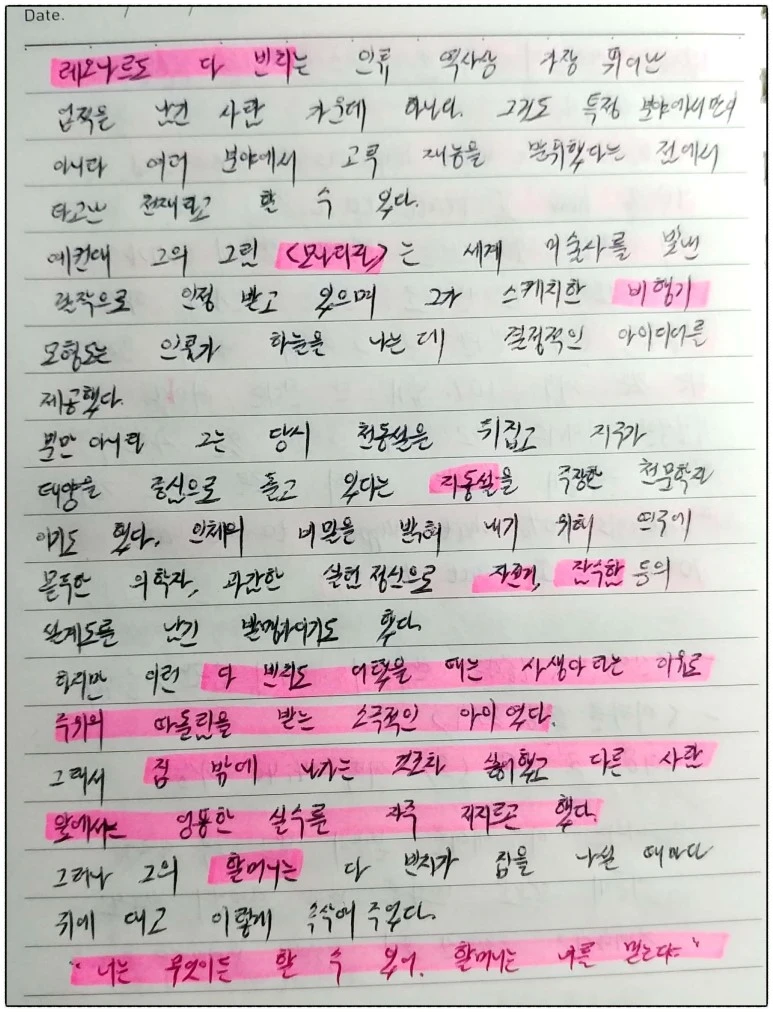 Date.
레오나르도 다 빈치는 인류 역사상 가장 뛰어난
업적을 남긴 사람 가운데 하나다. 그것도 특정 분야에서만이
아니라 여러 분야에서 고루 재능을 발휘했다는 점에서
타고난 천재라고 할 수 있다.
예컨대 그의 그림 <모나리자>는 세계 미술사를 빛낸
걸작으로 인정 받고 있으며 그가 스케치한 비행기
모형도는 인류가 하늘을 나는 데 결정적인 아이디어를
제공했다.
뿐만 아니라 그는 당시 천동설을 뒤집고 지구가
태양을 중심으로 돌고 있다는 지동설을 주장한 천문학자
이기도 했다. 인체의 비밀을 밝혀 내기 위해 연구에
몰두한 의학자, 과감한 실험 정신으로 자전거, 잠수함 등의
설계도를 남긴 발명가이기도 했다.
하지만 이런 다 빈치도 어렸을 때는 사생아라는 이유로
주위의 따돌림을 받는 소극적인 아이였다.
그래서 집 밖에 나가는 것조차 싫어했고 다른 사람
앞에서는 엉뚱한 실수를 자주 저지르곤 했다.
그러나 그의 할머니는 다 빈치가 집을 나설 때마다
귀에 대고 이렇게 속삭여 주었다.
"너는 무엇이든 할 수 있어. 할머니는 너를 믿는다."